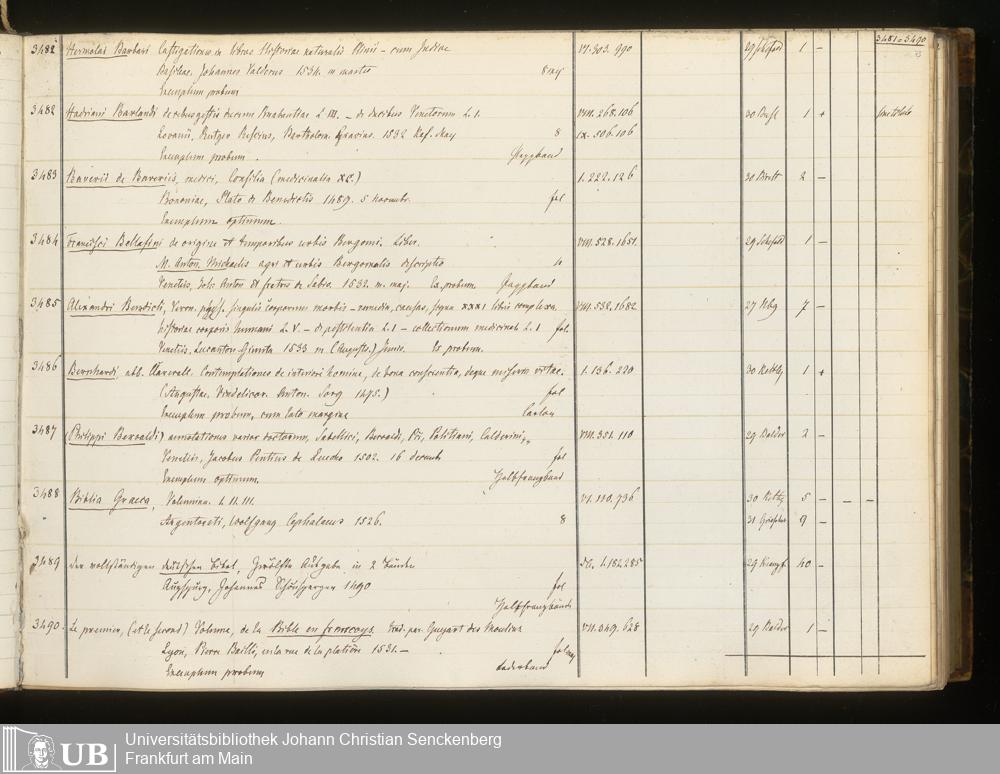 3481=3490
3482 Hermolai Barbari Castigationes in libros Historiae naturalis Plinii - cum Indice VI. 303. 990 29 1 -
Basileae. Johannes Valderus 1534. m martio 8 maj
Exemplum probum
3482 Hadriani Barlandi de rebus gestis ducum Brabantiae L III. - de ducibus Venetorum L 1. VIII. 268. 106 30 1 +
Lovanii, Rutger Rescius, Bartholom. Gravius. 1532 Kal. May 8 IX. 506. 106
Exemplum probum. Pappband
3483 Baverii de Baveriis, medici, Consilia (medicinalia XC.) 1. 222. 126 30 2 -
Bononiae, Plato de Benedictis 1489. 5 novembr. fol
Exemplum optimum.
3484 Francisci Bellafini de origine et temporibus urbis Bergomi. Liber. VIII. 528. 1651. 29 1 -
M. Anton. Michaelis agri et urbis Bergomatis descriptio 4
Venetiis, Joh. Anton et fratres de Sabio. 1532. m. maj. Ex. probum. Pappband
3485 Alexandri Benedicti, Veron. singulis corporum morbis - remedia, causas, signa XXXI libris complexa. VIII. 532. 1682 27 7 -
historiae corporis humani L. V. - de pestilentia L. 1 - collectionum medicinal L. 1 fol.
Venetiis. Lucanton. Giunta 1533 m (Augusto.) Junio. Ex probum.
3486 Bernhardi, abb. Claravall. Contemplationes de interiori homine, de bona conscientia, deque miseriis vitae. 1. 136. 220 30 1 +
(Augustae. Vindelicor. Anton. Sorg 1475.) fol
Exemplum probum, cum lato margine Carton
3487 (Philippi Beroaldi) annotationes varior doctorum, Sabellici, Beroaldi, Pii, Politiani, Calderini, VIII. 351. 110 29 2 -
Venetiis, Jacobus Pentius de Leucho 1502. 16 decemb fol
Exemplum optimum. Halbfranzband
3488 Biblia Graeca, Volumina. I. II. III. VI. 110. 736 30 5 - - -
Argentorati, Wolfgang Cephalaeus 1526. 8 31 9 -
3489 Der vollständigen deutschen Bibel, Zwölfte Ausgabe, in 2 Bänden 1. 182. 285 29 40 -
Augspurg, Johannes Schönsperger 1490 fol
Halbfranzbände
3490. Le premier, (et le second) Volume, de la Bible en francoys. trad. par. Guyart des Moulins VII. 349. 628 29 1 -
Lyon, Pierre Bailly, en la rue de la platiere 1531. - fol maj
Lederband
Exemplum probum
UB Universitätsbibliothek Johann Christian Senckenberg
Frankfurt am Main